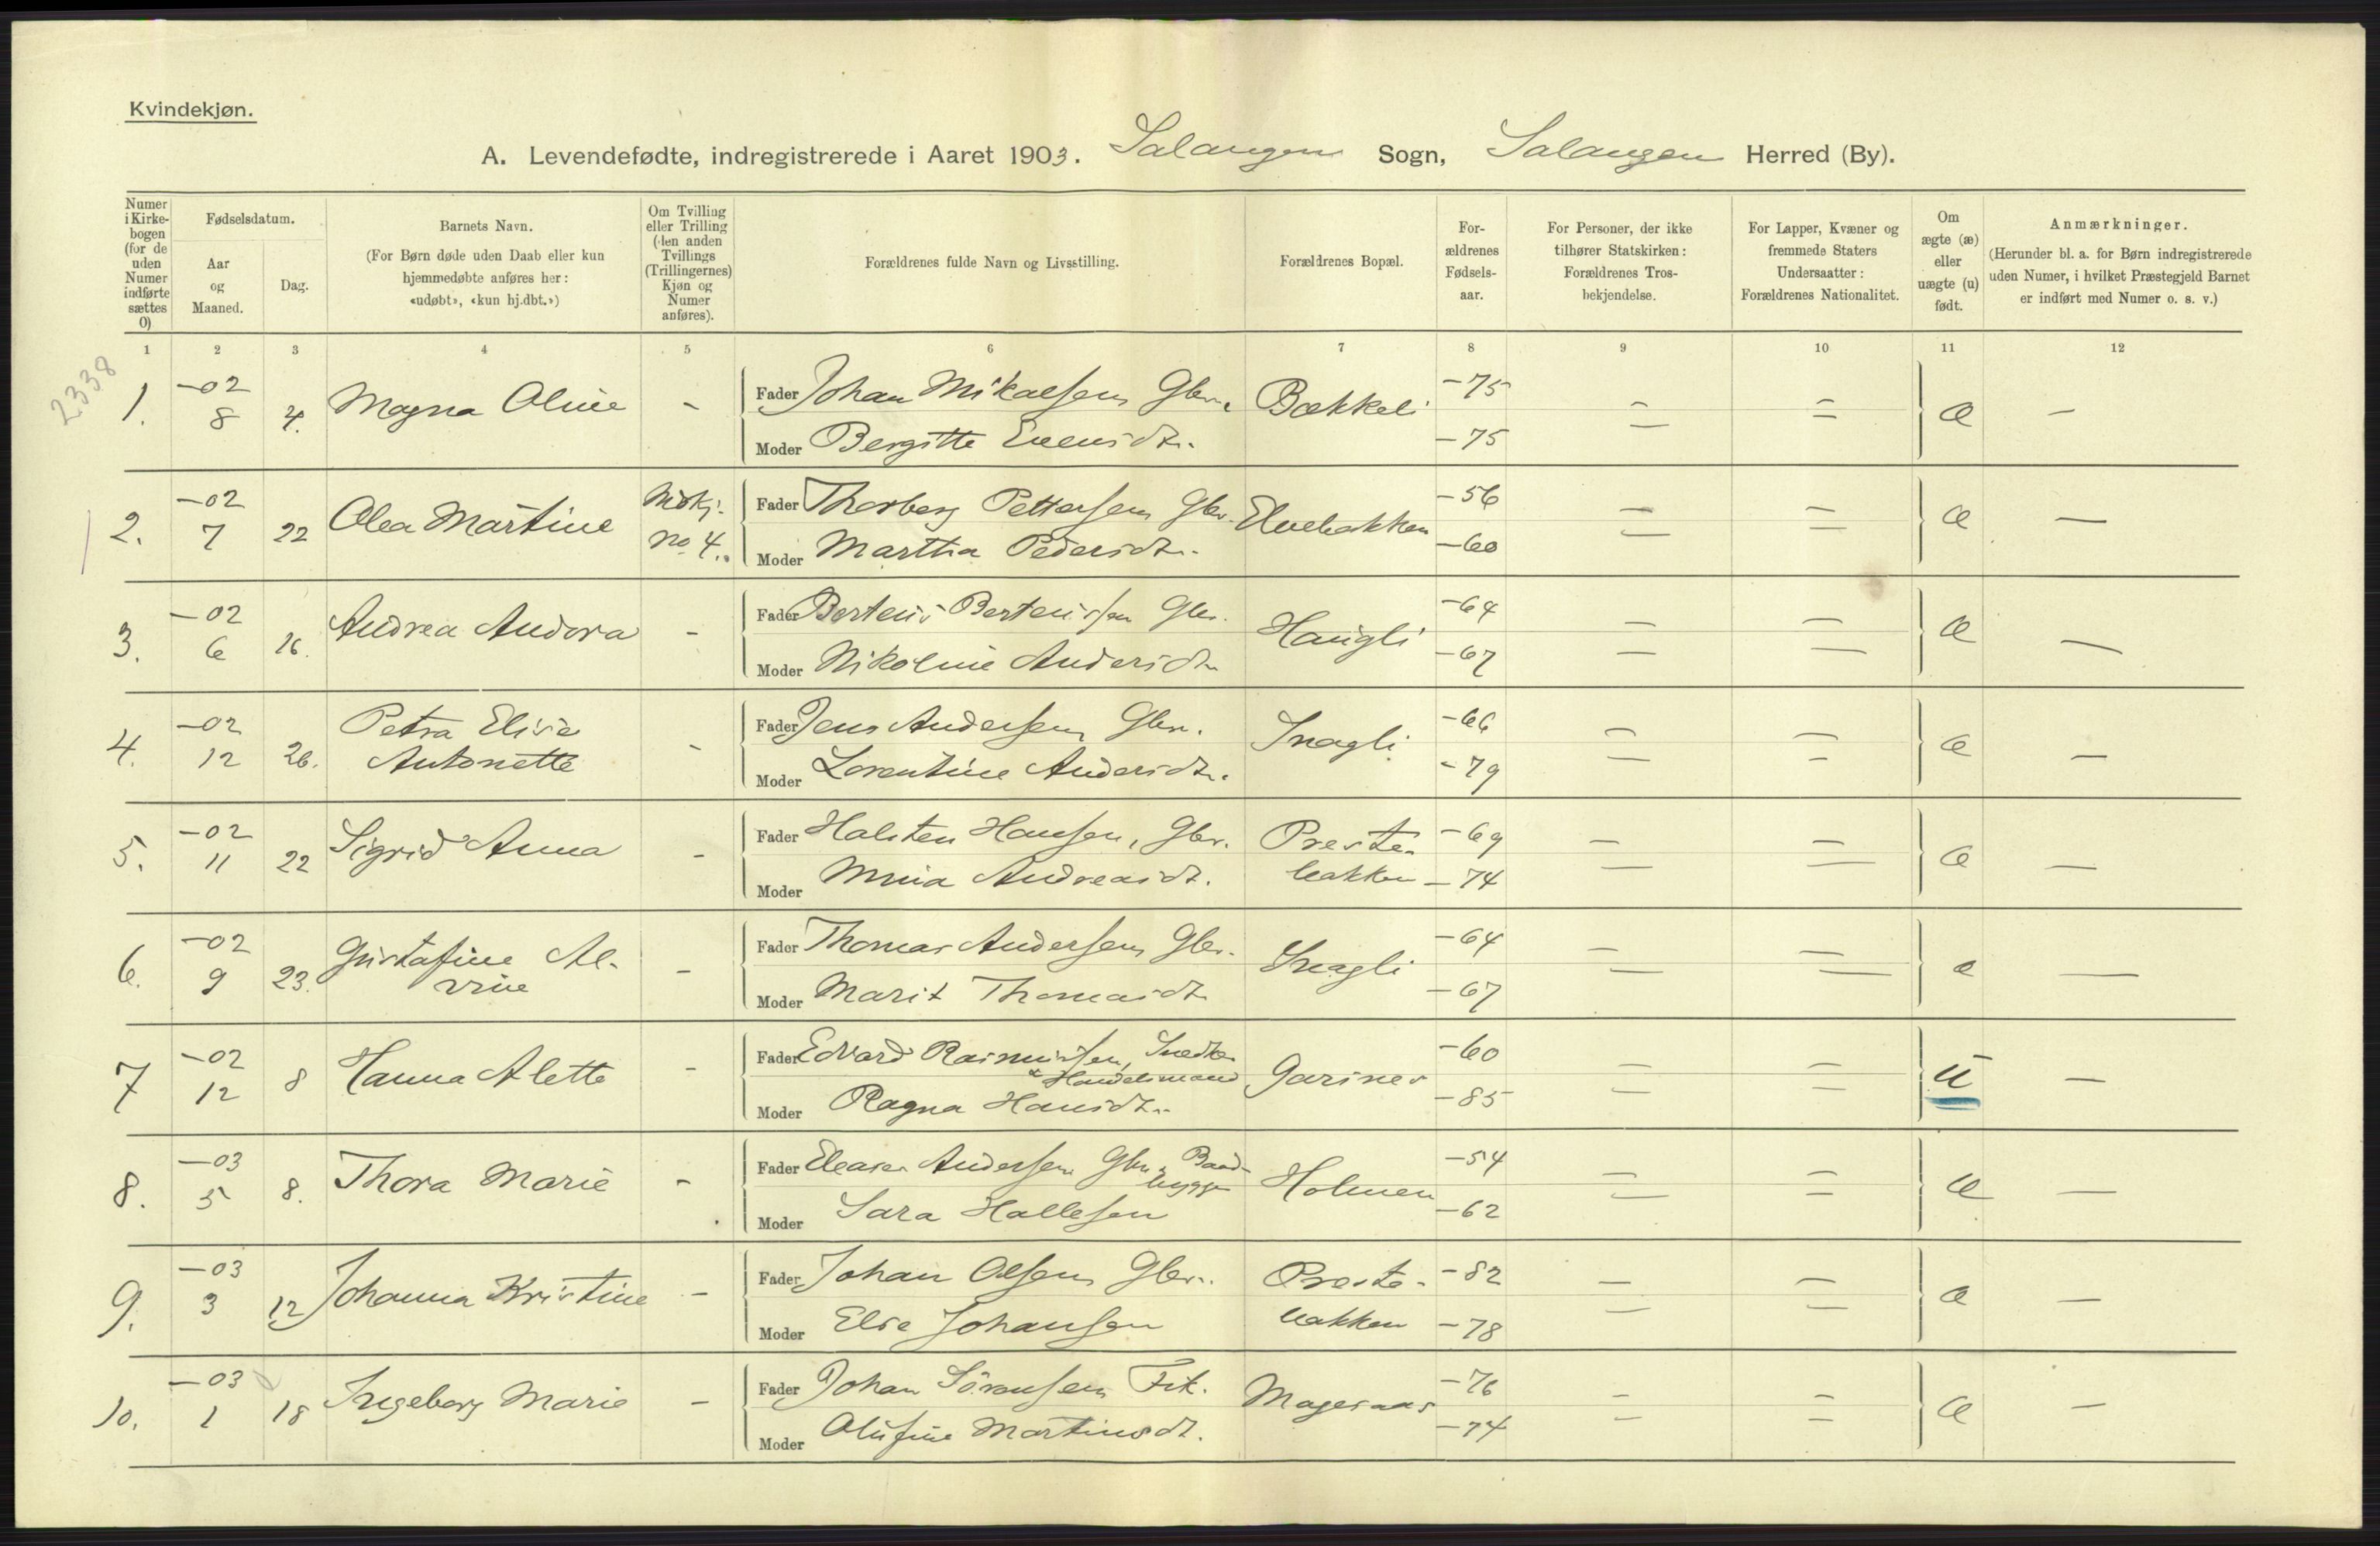 Kvindekjøn.
A. Levendefødte, indregistrerede i Aaret 1903. Salangen Sogn, Salangen Herred (By).
Numer i Kirkebogen (for de uden Numer indførte sættes 0)
Fødselsdatum.
Aar og Maaned.
Dag.
Barnets Navn.
(For Børn døde uden Daab eller kun hjemmedøbte anføres her: «udøbt», «kun hj.dbt.»)
Om Tvilling eller Trilling (den anden Tvillings (Trillingernes) Kjøn og Numer anføres).
Forældrenes fulde Navn og Livsstilling.
Forældrenes Bopæl.
For-ældrenes Fødsels-aar.
For Personer, der ikke tilhører Statskirken: Forældrenes Tros-bekjendelse.
For Lapper, Kvæner og fremmede Staters Undersaatter: Forældrenes Nationalitet.
Om ægte (æ) eller uægte (u) født.
Anmærkninger.
(Herunder bl. a. for Børn indregistrerede uden Numer, i hvilket Præstegjeld Barnet er indført med Numer o. s. v.)
1 2 3 4 5 6 7 8 9 10 11 12
2338
1. -02 8 4. Magna Oline - Fader Johan Mikalsen Gbr. Bækkeli -75 æ -
Moder Bergitte Evensdtr. -75
2. -02 7 22 Olea Martine Mdkj. no 4. Fader Thorberg Pettersen Gbr. Elvebakken -56 æ -
Moder Martha Pedersdtr. -60
3. -02 6 16. Andrea Andora - Fader Berteus Berteussen Gbr. Haugli -64 æ -
Moder Nikoline Andersdtr -67
4. -02 12 26. Petra Elise Antonette - Fader Jens Andersen, Gbr. Snagli -66 æ -
Moder Lorentine Andersdtr. -79
5. -02 11 22 Sigrid Anna - Fader Halsten Hansen, Gbr. Preste- -69 æ -
Moder Mina Andreasdt. bakken -74
6. -02 9 23. Gustafine Al-vine - Fader Thomas Andersen Gbr. Snagli -64 æ -
Moder Marit Thomasdt -67
7 -02 12 8 Hanna Alette - Fader Edvard Rasmussen, Snedker & Handelsmand Garsnes -60 u -
Moder Ragna Hansdtr. -85
8. -03 5 8. Thora Marie - Fader Eleaser Andersen Gbr, Baad-bygger Holmen -54 æ -
Moder Sara Hallesen -62
9. -03 3 12 Johanna Kristine - Fader Johan Olsen Gbr. Preste- -82 æ -
Moder Else Johansen bakken -78
10. -03 1 18 Ingeborg Marie - Fader Johan Sörensen Fisk. -76 æ -
Moder Olufine Martinsdt. -74